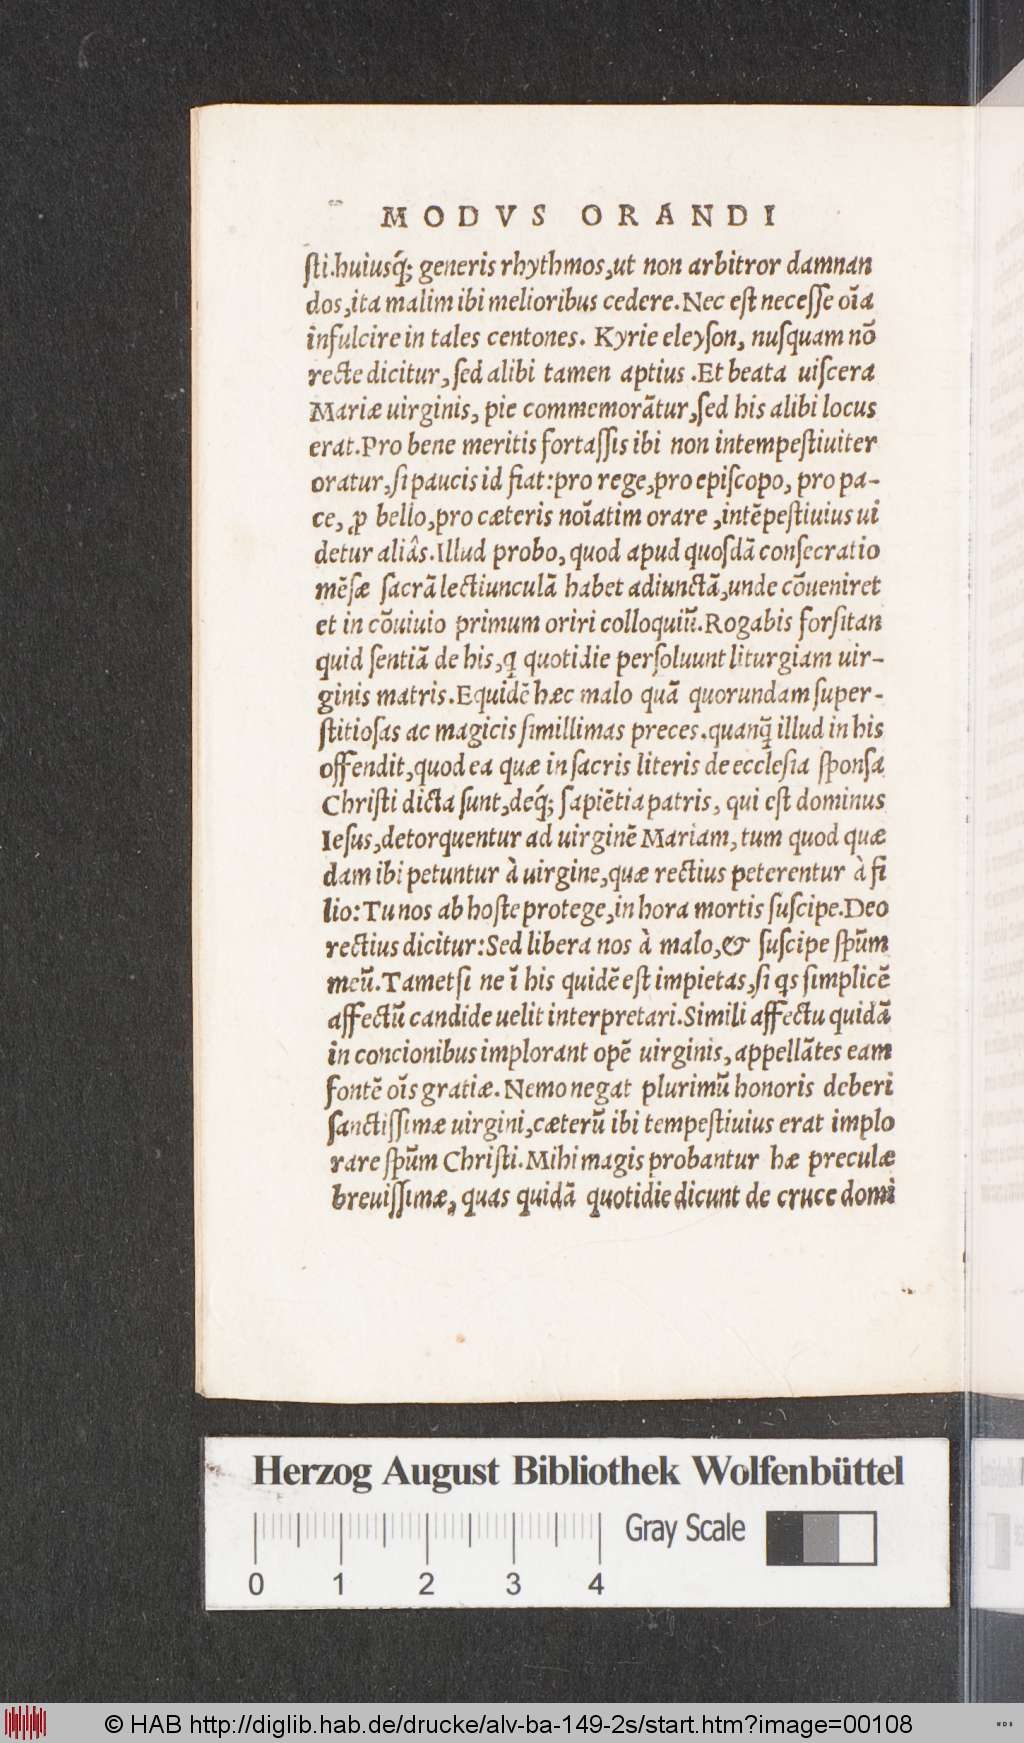 MODVS ORANDI
ſti.huiusq́; generis rhythmos,ut non arbitror damnan
dos,ita malim ibi melioribus cedere.Nec eſt neceſſe oīa
infulcire in tales centones. Kyrie eleyſon, nuſquam nō
recte dicitur,ſed alibi tamen aptius .Et beata uiſcera
Mariæ uirginis, pie commemorãtur,ſed his alibi locus
erat.Pro bene meritis fortaſſis ibi non intempeſtiuiter
oratur,ſi paucis id fiat:pro rege,pro epiſcopo, pro pa-
ce, ꝓ bello,pro cæteris noīatim orare ,intẽpeſtiuius ui
detur aliâs.Illud probo,quod apud quoſdã conſecratio
mẽſæ ſacrã lectiunculã habet adiunctã,unde cõueniret
et in cõuiuio primum oriri colloquiũ.Rogabis forſitan
quid ſentiã de his,q̃ quotidie perſoluunt liturgiam uir-
ginis matris.Equidẽ hæc malo quã quorundam ſuper-
ſtitioſas ac magicis ſimillimas preces.quanq̃ illud in his
offendit,quod ea quæ in ſacris literis de eccleſia ſponſa
Chriſti dicta ſunt,deq́; ſapiẽtia patris, qui eſt dominus
Ieſus,detorquentur ad uirginẽ Mariam, tum quod quæ
dam ibi petuntur à uirgine,quæ rectius peterentur à fi
lio:Tu nos ab hoſte protege,in hora mortis ſuſcipe.Deo
rectius dicitur:Sed libera nos à malo,& ſuſcipe ſpũm
meũ.Tametſi ne ĩ his quidẽ eſt impietas,ſi qs ſimplicẽ
affectũ candide uelit interpretari.Simili affectu quidã
in concionibus implorant opẽ uirginis,appellãtes eam
fontẽ oīs gratiæ.Nemo negat plurimũ honoris deberi
ſanctiſſimæ uirgini,cæterũ ibi tempeſtiuius erat implo
rare ſpũm Chriſti.Mihi magis probantur hæ preculæ
breuiſſimæ, quas quidã quotidie dicunt de cruce domi
Herzog August Bibliothek Wolfenbüttel
Gray Scale
0 1 2 3 4
© HAB http://diglib.hab.de/drucke/alv-ba-149-2s/start.htm?image=00108